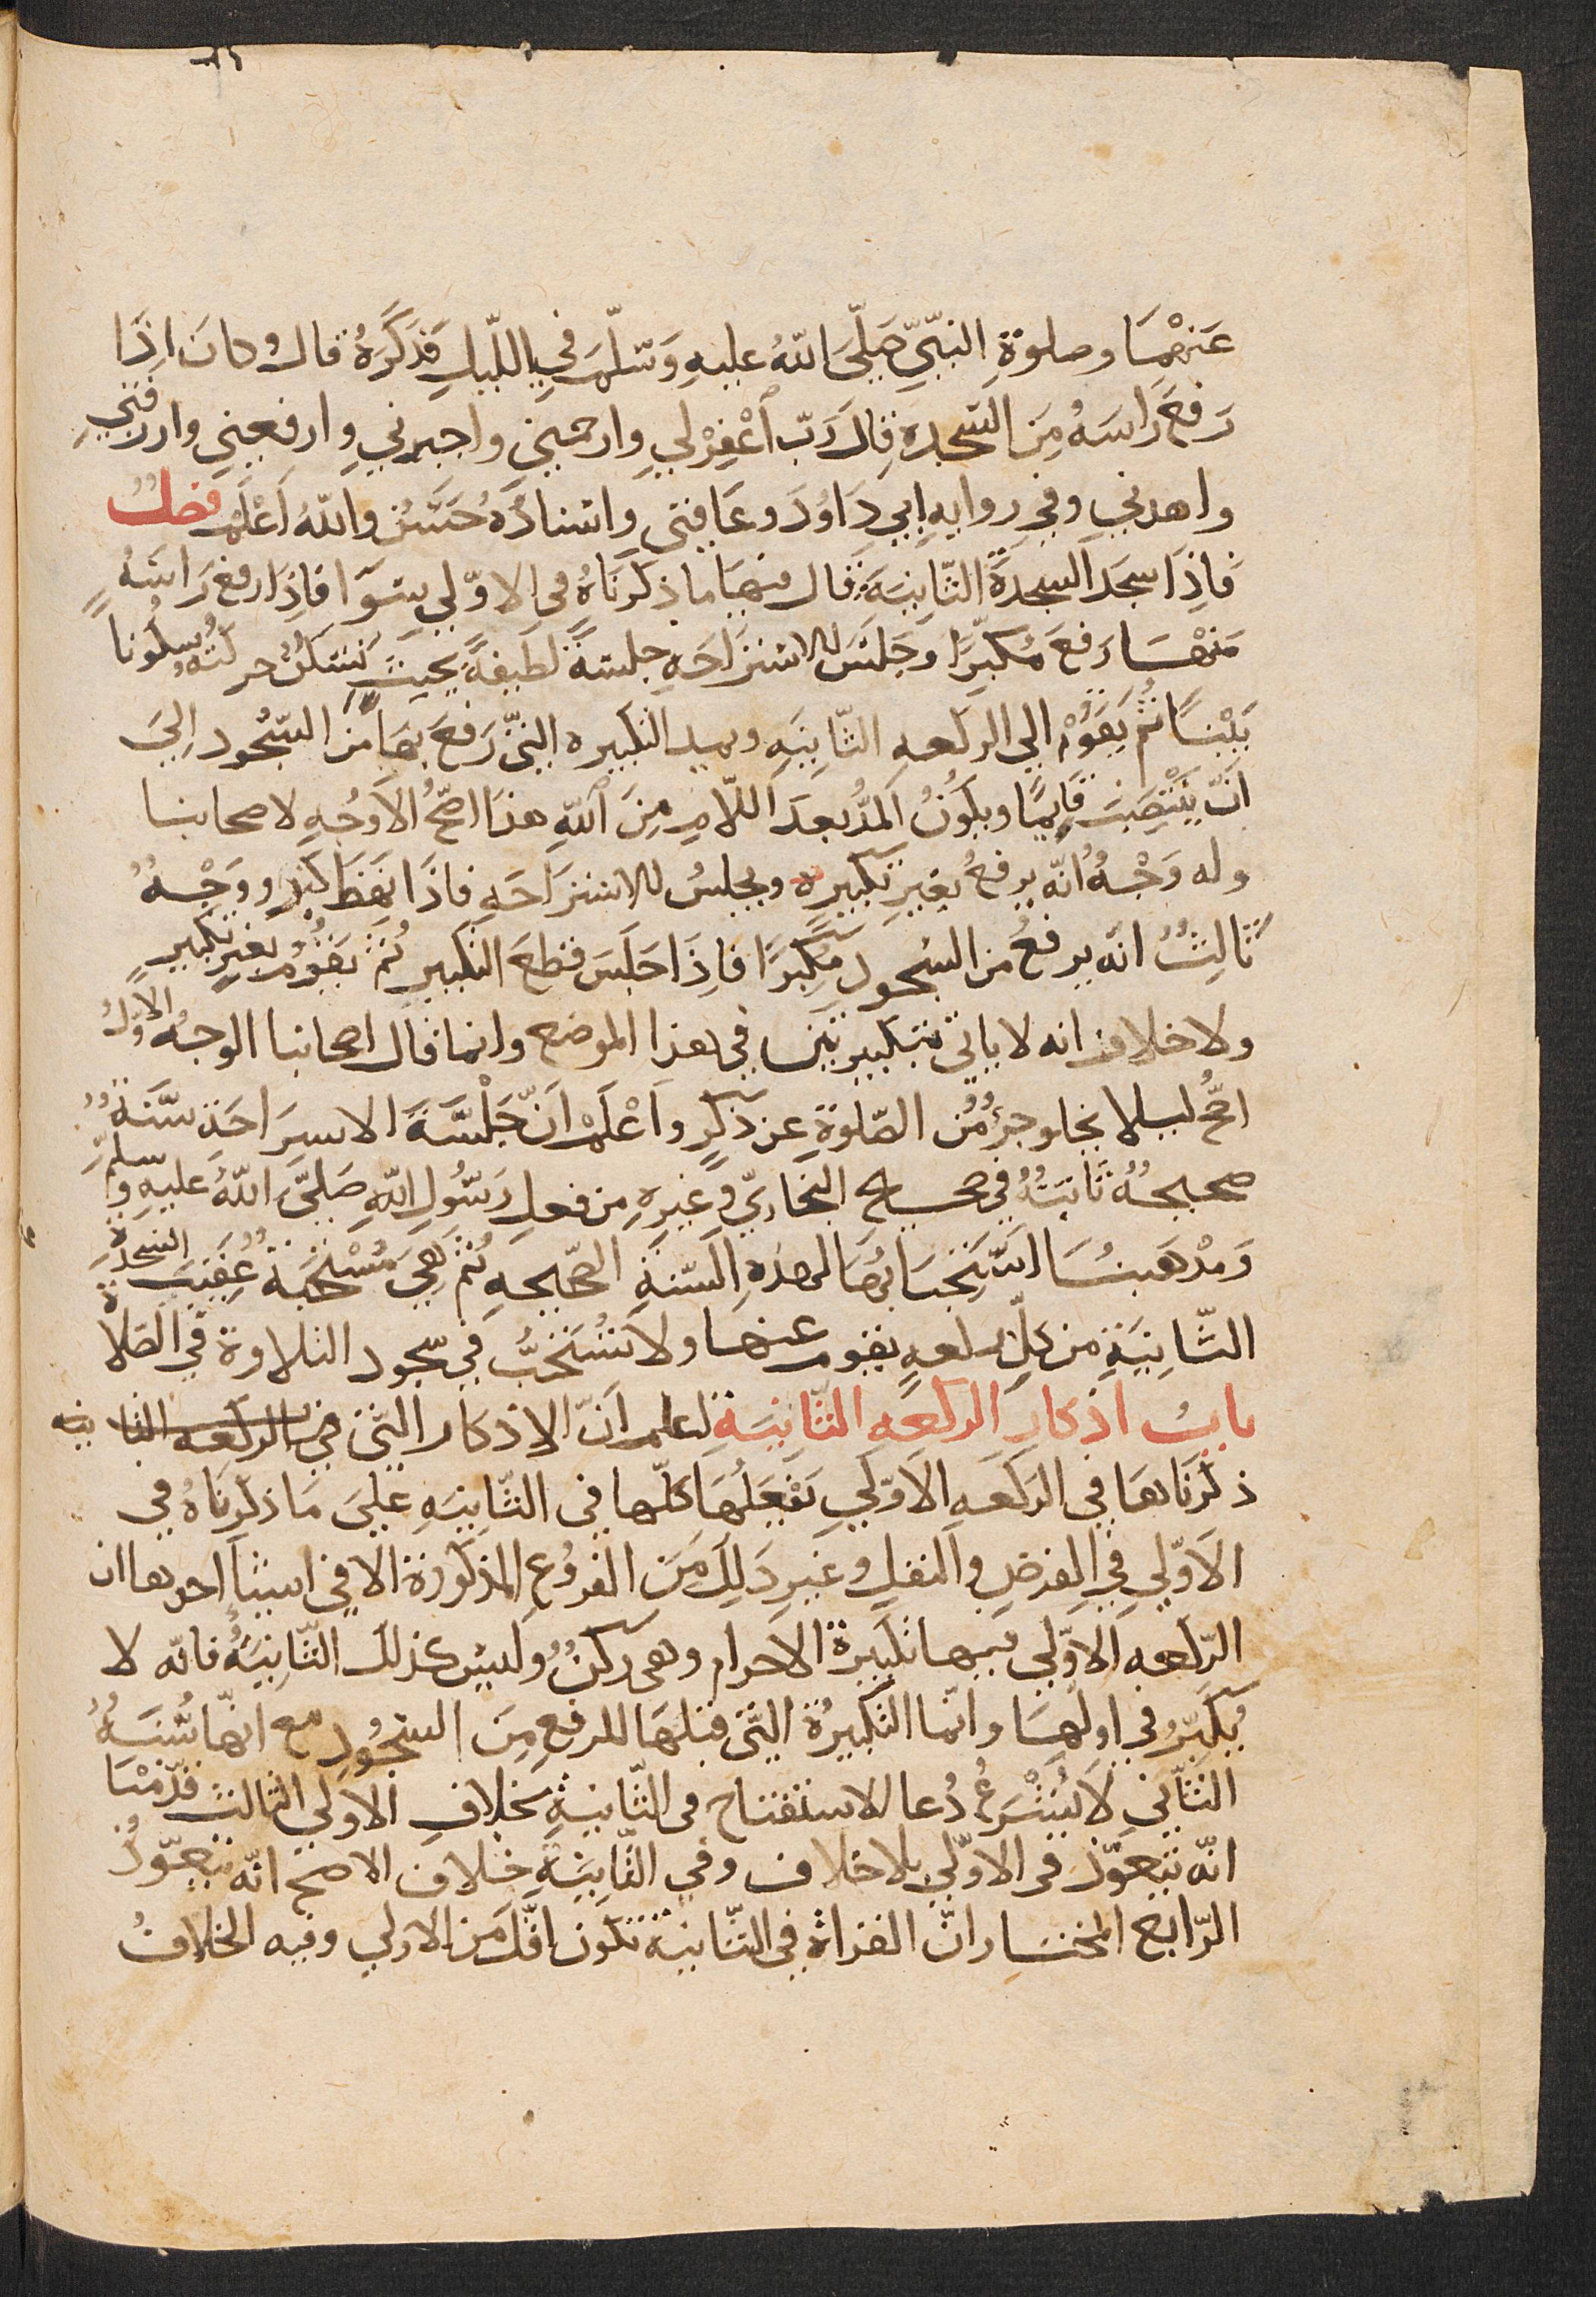 عَنهُمَا وصلوةِ النبّيِّ صَلّىَ اللّهُ عليهِ وَسّلّمَ في الليلِ فذكَرَهُ قال وكانَ اِذَا
رَفعَ رَاسَهُ مِنَ السّجدةِ قال رَبّ اَغْفِرْ لي وارحمني واجبرني وارفعني وارزقني
واهدني وفي روايهِ ابي دَاوُدَ وعَافِني واسنادُهُ حَسَنٌ واللّهُ اَعْلَم فصلٌ
فَاِذَا سجَدَ السجدَةَ الثّانِيَةَ قال فيهَا ما ذكرَنَاهُ في الاوّلي سَوآ فاِذَا رفعَ رَاسَهُ
منهَا رَفعَ مُكبِرًا وجَلسَ للاستراحَهِ جلسةً لطَيفةً بحيثُ تَسكُنُ حركتُهُ سُكُوناً
بَيْنًا ثُمّ يَقوْمُ الي الركعهِ الثّانِيَهِ ويمد التكبيره التّي رَفعَ بهَا من السّجُود اِلىَ
اَنّ يَنْتَصِبَ قايِمًا ويكُونُ المَدُّ بعدَ اللّامِ مِنَ اَللّهِ هذَا اصَحُّ الاَوجُهِ لاصحابنا
وله وَجْهٌ انّه يرفعُ بغيرِ تكبيره ويجلسُ للاستراحَهِ فاذَا نهَضَ كبر ووَجْهٌ
ثَالِثٌ انّه يرفعُ من السُجود مكبّرًا فاِذَا جَلَسَ قطعَ التكبير ثُمّ يَقوُمُ بغيرِ تكبيرٍ
ولا خلاف انه لا ياتي بتكبيرتين في هذا الموضع وانما قال اصحابنا الوجهُ الاوّلُ
اصحُّ ليلا يخلو جزءٌ من الصّلوةِ عن ذكرٍ واَعْلَمْ اَنّ جَلْسَةَ الاسراحَةِ سّنةٌ
صحيحةٌ ثَابتةٌ في صحيح البخاريّ وغيرهِ من فعلِ رَسُولِ اللّهِ صَلىَّ اللّهُ عليهِ وسلّم
وَمذْهَبنُا استِحْبابُهَا لهذهِ السّنةِ الصّحيحهِ ثُمّ هِيَ مُسْتَحَبّة عُقيبَ السّجدَةِ
الثّانِيَةِ من كلّ ركعهٍ يقوم عنها ولا تُستَحَبُّ في سجود التلاوة في الصَلاة
بابُ اذكارِ الركعهِ الثّانِيَةِ لعلم اَنّ الاذكار التّي في الركعه الثانيه
ذكرَنَاهَا في الرَكعَهِ الاَوّلي يَفعَلُهَا كلّها في الثّانِيَهِ عَلىَ مَا ذكرنَاهُ في
الاَوّلي في الفرضِ والنفلِ وغَيرِ ذلِكَ مِنَ الفرُوعِ المذكورَةِ الا في اشيآ احدها ان
الرّكعه الاوّلي فيها تكبيرةَ الاحرام وهي ركنٌ وليسَ كذلكَ الثّانِيَةُ فانّه لا
يُكبّرُ في اولهَا وانّما التكبيرُة التّي قبلهَا للرفعِ مِنَ السّجُودِ مع انهّا سُنّةٌ
الثّاني لا يُشْرَعُ دُعا الاستفتاح في الثّانيةِ بخلافِ الاولي الثالث قدّمنَا
انّه يتعوّذ في الاوّلي بلا خلاف وفي الثّانِيَةِ خلاف الاصح انّه يتعوّذُ
الرّابع المختار انّ القراة في الثّانيةِ تكون اقلّ من الاولي وفيه الخلافُ